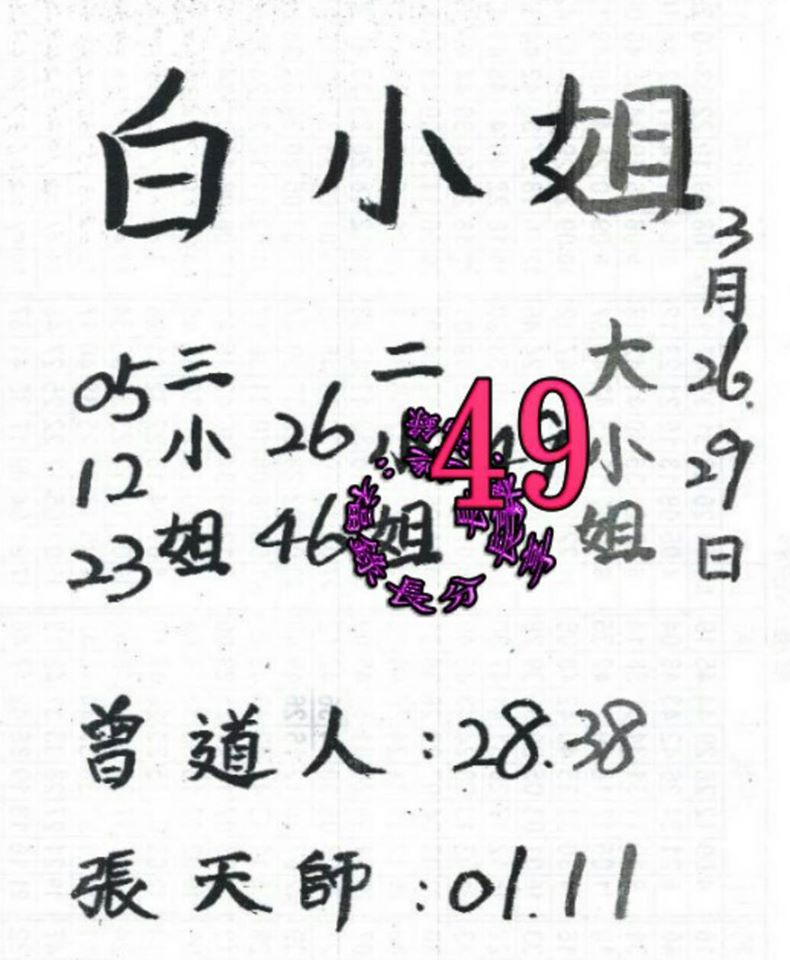 白小姐
3月26.29日
大小姐
49
二小姐
26
46
三小姐
05
12
23
曾道人:28.38
張天師:01.11